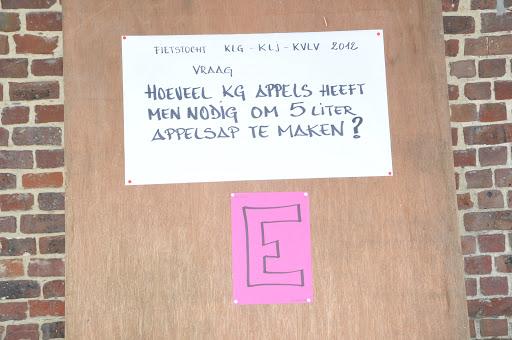 FIETSTOCHT KLG - KLJ - KVLV 2012
VRAAG
HOEVEEL KG APPELS HEEFT
MEN NODIG OM 5 LITER
APPELSAP TE MAKEN?
E